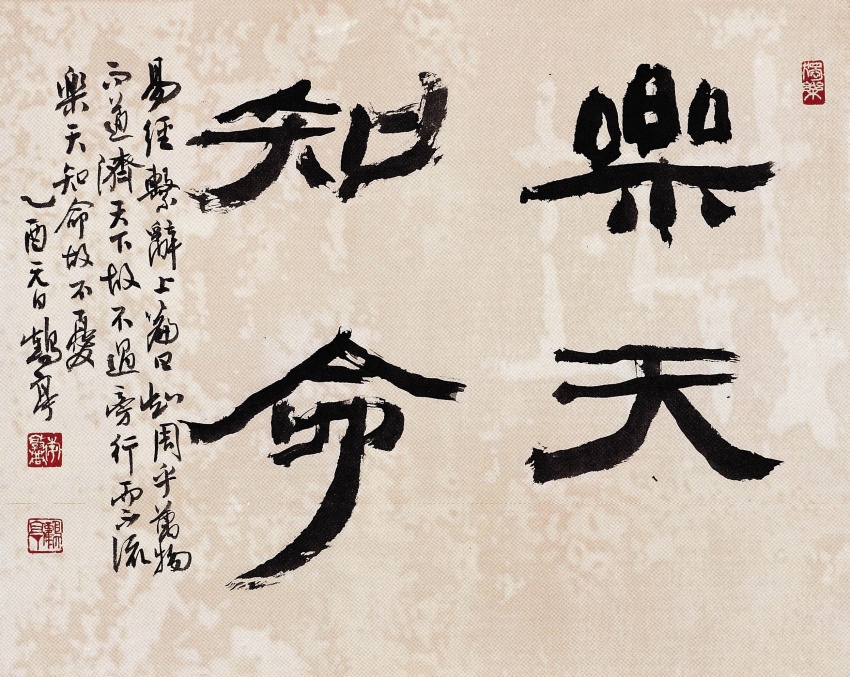 樂天
知命
易經繫辭上篇曰知周乎萬物
而道濟天下故不過旁行而不流
樂天知命故不憂
乙酉元日鶴亭